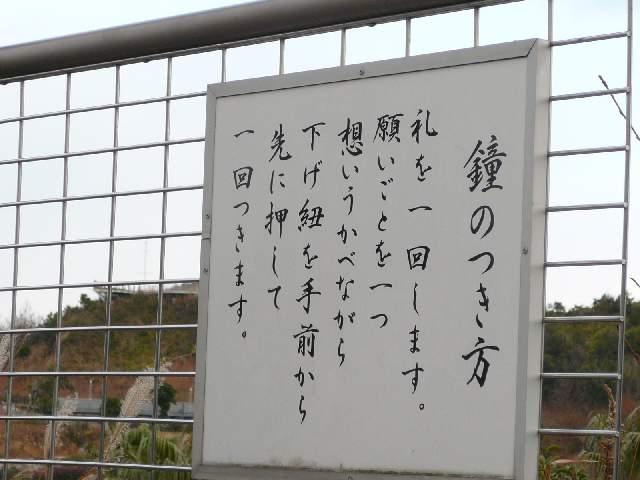 鐘のつき方
礼を一回します。
願いごとを一つ
想いうかべながら
下げ紐を手前から
先に押して
一回つきます。